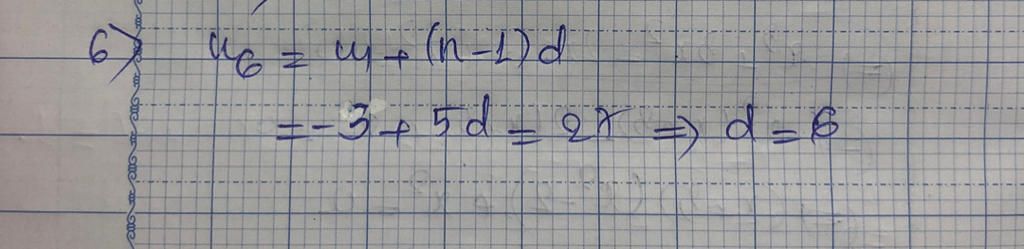 6) u₆ = u₁ + (n-1)d
= -3 + 5d = 27 => d = 6